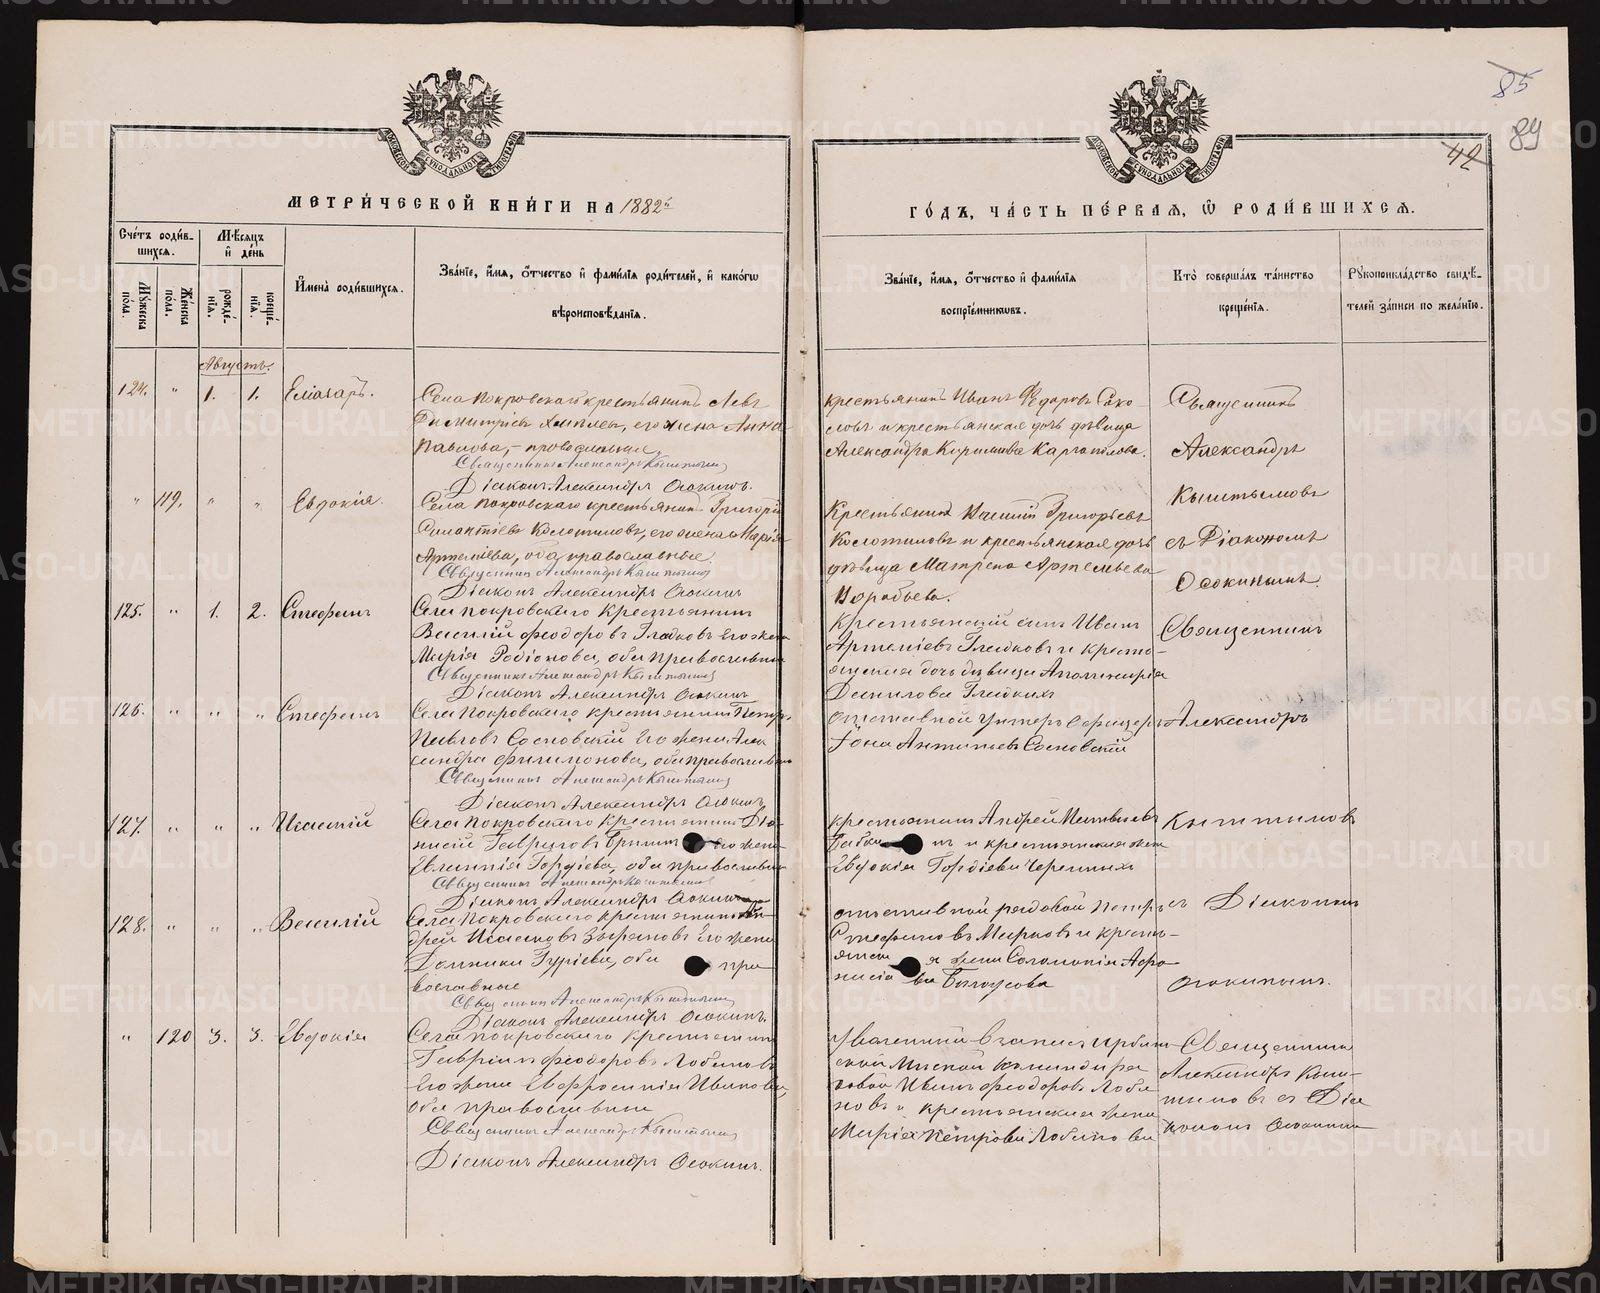 85
89
42
МЕТРИ́ЧЕСКОЙ КНИ́ГИ НА 1882й
ГО́ДЪ, ЧА́СТЬ ПЕ́РВАЯ, Ѿ РОДИ́ВШИХСЯ.
Сче́тъ роди́в-
шихся.
Мѣ́сяцъ
и҆ де́нь
Мꙋ́жеска
по́ла.
Же́нска
по́ла.
рожде́-
нїя.
креще́-
нїя.
И҆мена̀ роди́вшихся.
Зва́нїе, и҆́мя, ѻ҆́тчество и҆ фами́лїя роди́телей, и҆ како́гѡ
вѣроисповѣ́данїя.
Зва́нїе, и҆́мя, ѻ҆́тчество и҆ фами́лїя
воспрїе́мникѡвъ.
Кто̀ соверша́лъ та́инство
креще́нїя.
Рꙋкоприкла́дство свидѣ́-
телей за́писи по жела́нїю.
Августъ.
124. " 1. 1. Еліазаръ.
Села Покровскаго крестьянинъ Левъ
Димитріевъ его жена Анна
Павлова, православные
Священникъ Александръ Кыштымовъ
Діаконъ Александръ Осокинъ.
крестьянинъ Иванъ Ѳедоровъ Соко-
ловъ и крестьянская дочь дѣвица
Александра Каргаполова.
Священникъ
Александръ
Кыштымовъ
съ Діакономъ
Осокинымъ.
" 119. " " Евдокія.
Села Покровскаго крестьянинъ Григорій
Колотиловъ, его жена Марія
Артеміева, оба православные
Священникъ Александръ Кыштымовъ
Діаконъ Александръ Осокинъ
Крестьянинъ Григорьевъ
Колотиловъ и крестьянская дочь
дѣвица Матрена Артемьева
Воробьева.
125. " 1. 2. Стефанъ
Села Покровскаго крестьянинъ
Василій Феодоровъ Гладковъ его жена
Марія Родіонова, оба православные
Священникъ Александръ Кыштымовъ
Діаконъ Александръ Осокинъ
Крестьянскій сынъ Иванъ
Артеміевъ Гладковъ и кресть-
янская дочь дѣвица Аполинарія
Данилова Гладкихъ
Священникъ
126. " " " Стефанъ
Села Покровскаго крестьянинъ Петръ
Павловъ Сосновскій его жена Алек
сандра Филимонова, оба православные
Священникъ Александръ Кыштымовъ
Діаконъ Александръ Осокинъ
отставной унтеръ офицеръ
Іона Антипьевъ Сосновскій
Александръ
127. " " " Исаакій
Села Покровскаго крестьянинъ Діо-
нисій Гавриловъ его жена
Евланпія Гордіева, оба православные
Священникъ Александръ Кыштымовъ
Діаконъ Александръ Осокинъ
крестьянинъ Андрей Матвѣевъ
и крестьянская жена
Евдокія Гордіева Черемныхъ
Кыштымовъ
128. " " " Василій
Села Покровскаго крестьянинъ Ан-
дрей Исааковъ Зыряновъ его жена
Домника Гуріева, оба пра
вославные
Священникъ Александръ Кыштымовъ
Діаконъ Александръ Осокинъ.
отставной рядовой Петръ
Стефановъ Марковъ и кресть-
янская жена Соломонія Афо
насіева Бѣлоусова
съ Діакономъ
Осокинымъ.
" 120 3. 3. Евдокія
Села Покровскаго крестьянинъ
Гавріилъ Феодоровъ Лобановъ
его жена Евфросинія Иванова,
оба православные
Священникъ Александръ Кыштымовъ
Діаконъ Александръ Осокинъ.
Уволенный въ запасъ Ирбит
ской командира
Иванъ Феодоровъ Лоба
новъ и крестьянская жена
Марія Петрова Лобанова
Священникъ
Александръ Кыш-
тымовъ съ Діа
кономъ Осокинымъ
METRIKI.GASO-URAL.RU